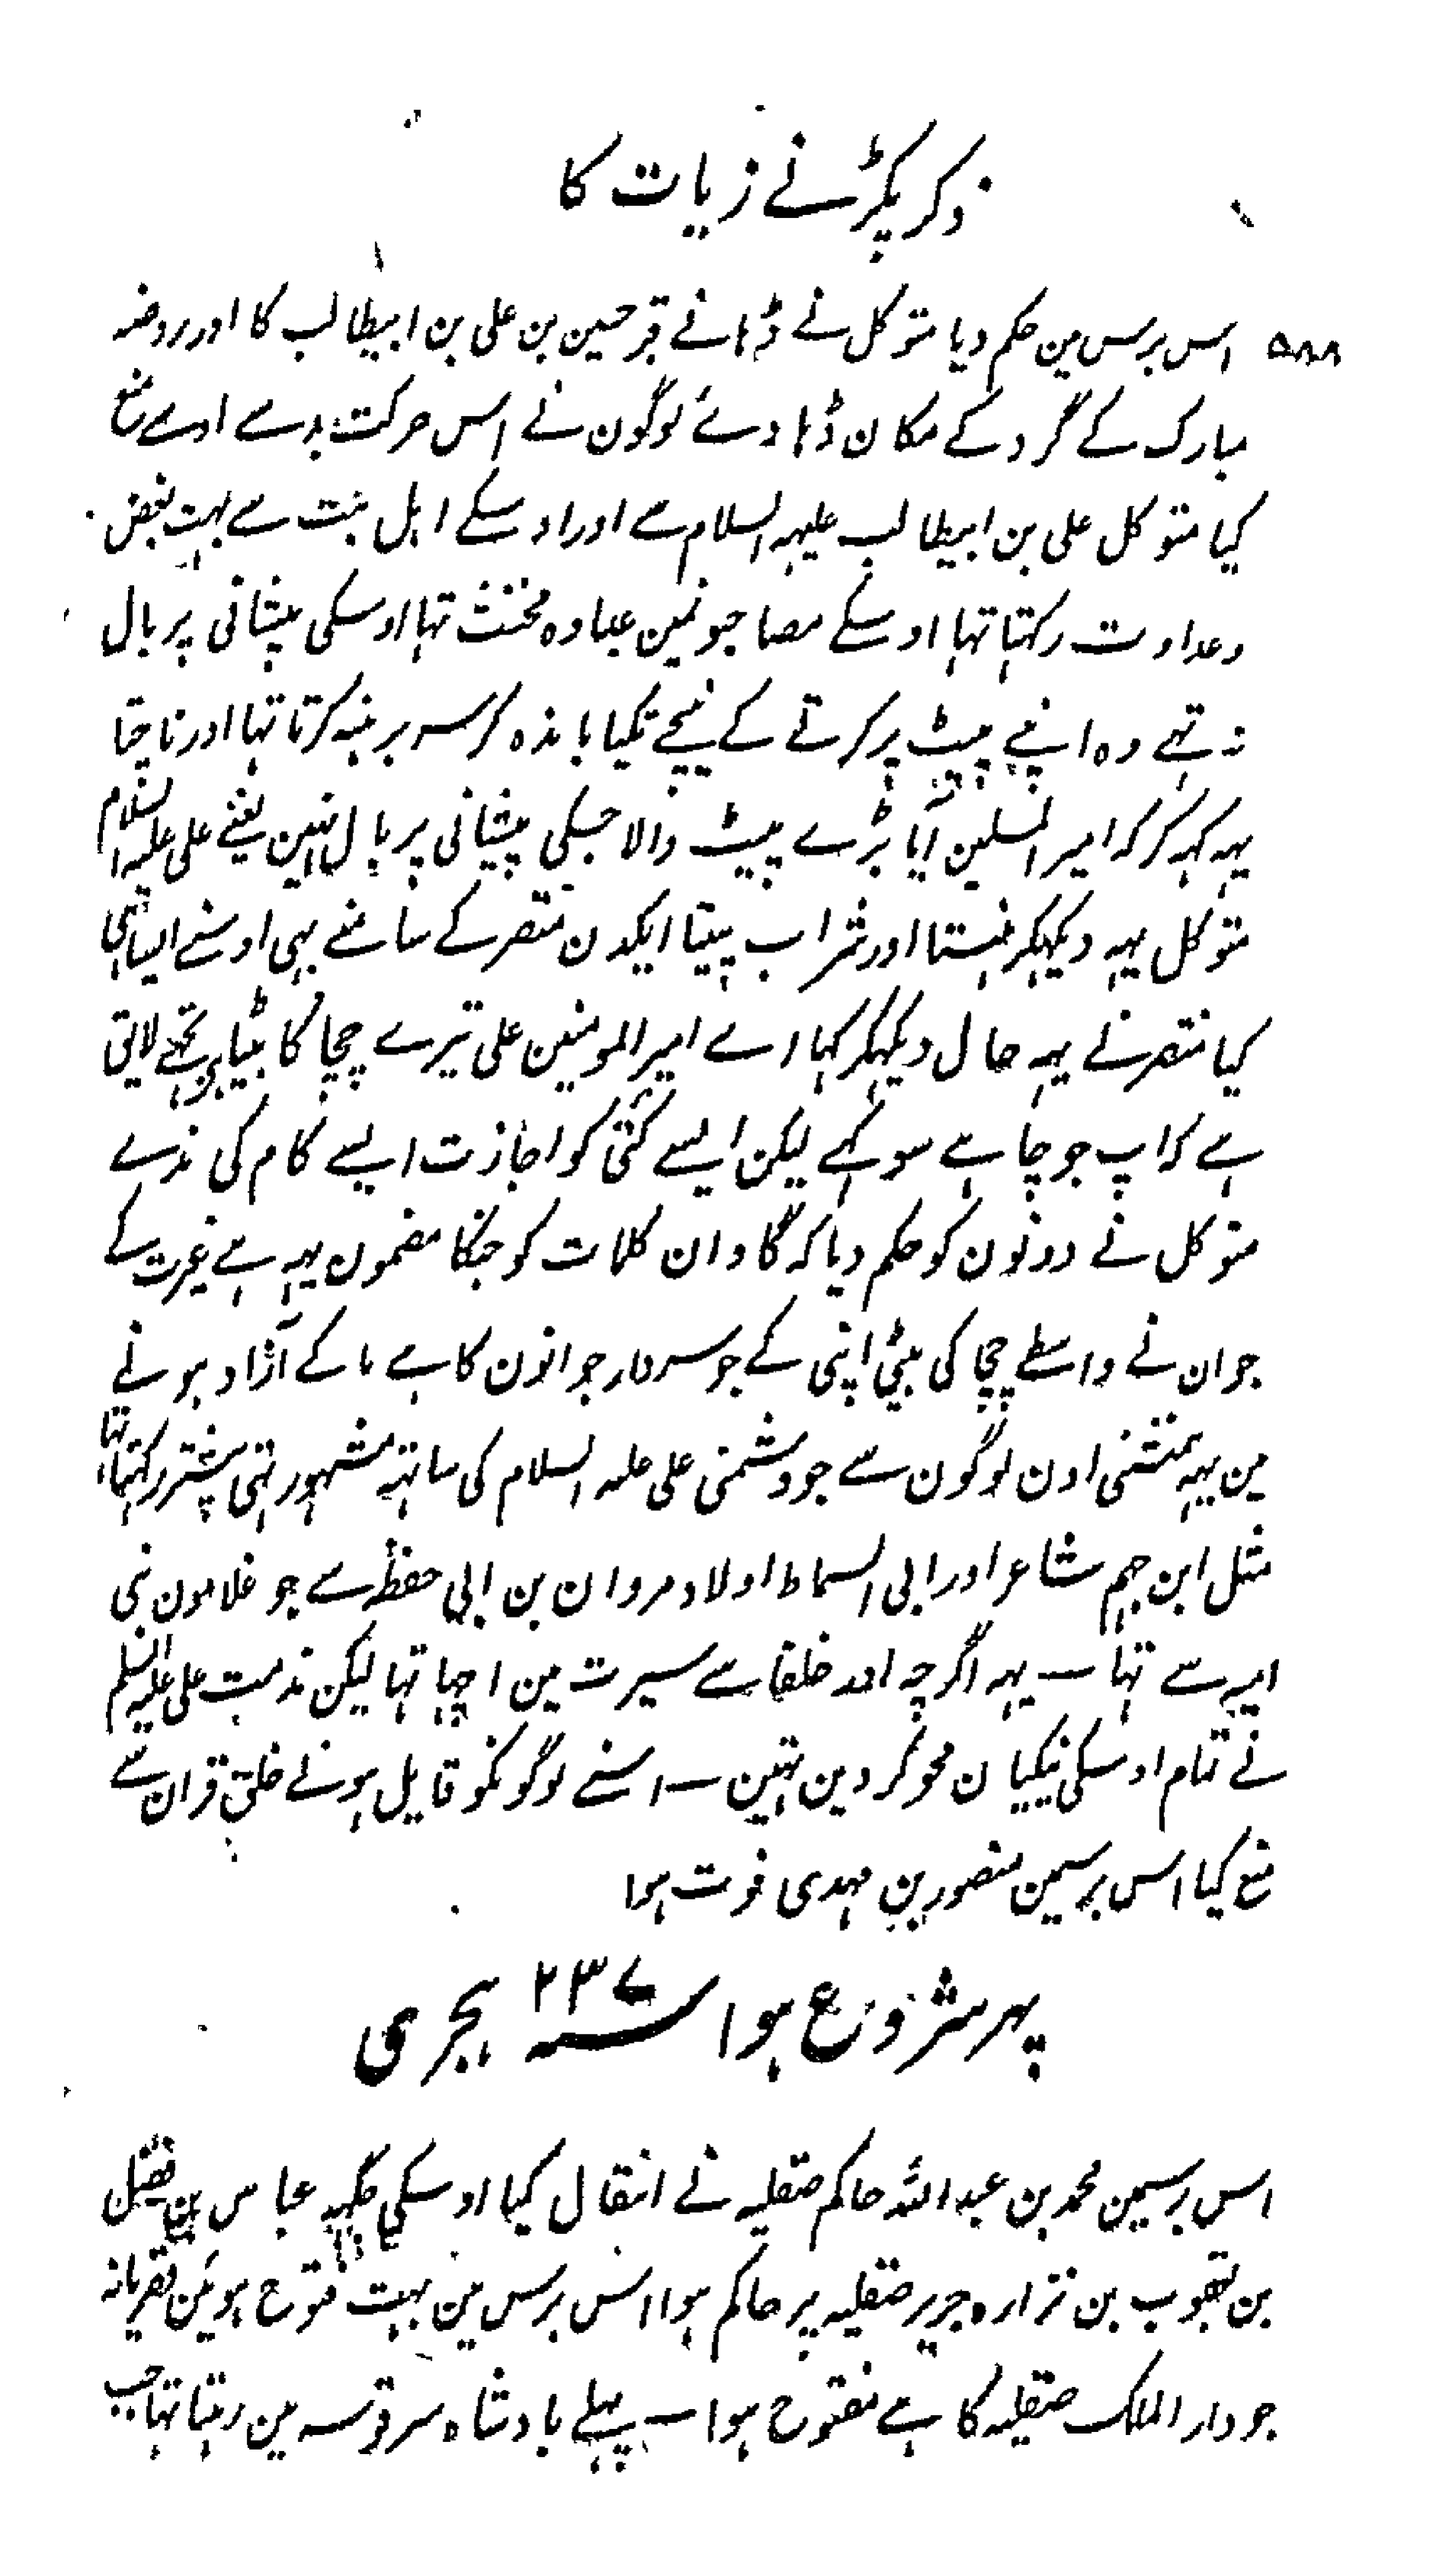 ذکر پکڑنے زیات کا
۵۸۸ اس برس مین حکم دیا متوکل نے ڈہانے قبر حسین بن علی بن ابیطالب کا اور روضہ
مبارک کے گرد کے مکان ڈہا دے لوگون نے اس حرکت بد سے اوسے منع
کیا متوکل علی بن ابیطالب علیہ السلام سے اور اوسکے اہل بیت سے بہت بغض
وعداوت رکہتا تہا اوسکے مصاحبونمین عبادہ مخنث تہا اوسکی پیشانی پر بال
نہ تہے وہ اپنے پیٹ پر کرتے کے نیچے تکیا باندہ کر سر برہنہ کرتا تہا اور ناچتا
یہہ کہہ کر کہ امیر المسلمین آیا بڑے پیٹ والا جسکی پیشانی پر بال نہین یعنے علی علیہ السلام
متوکل یہہ دیکہکر ہنستا اور شراب پیتا ایکدن منتصر کے سامنے بہی اوسنے ایسا ہی
کیا منتصر نے یہہ حال دیکہکر کہا اے امیر المومنین علی تیرے چچا کا بیٹا ہے تجہے لائق
ہے کہ اپ جو چاہے سو کہے لیکن ایسے کتی کو اجازت ایسے کام کی ندے
متوکل نے دونون کو حکم دیا کہ گاو ان کلمات کو جنکا مضمون یہہ ہے غیرت کے
جوان نے واسطے چچا کی بیٹی اپنی کے جو سردار جوانون کا ہے ما کے آزاد ہونے
مین یہہ ہمنشنی اون لوگون سے جو دشمنی علی علیہ السلام کی ساتہہ مشہور تہی پیشتر رکہتا تہا
مثل ابن جہم شاعر اور ابی السماط اولاد مروان بن ابی حفظہ سے جو غلامون بنی
امیہ سے تہا۔ یہہ اگرچہ اور خلفا سے سیرت مین اچہا تہا لیکن مذمت علی علیہ السلم
نے تمام اوسکی نیکیان محو کر دین تہین۔ اسنے لوگونکو قایل ہونے خلق قران سے
منع کیا اس برسمین منصور بن مہدی فوت ہوا
پہر شروع ہوا سنہ ۲۳۷ ہجری
اس برسمین محمد بن عبد اللہ حاکم صقلیہ نے انتقال کیا اوسکی جگہہ عباس بن فضل
بن یعقوب بن فزارہ جریر صقلیہ پر حاکم ہوا اس برس مین بہت فتوح ہوئین قصریانہ
جو دار الملک صقلیہ کا ہے مفتوح ہوا۔ پہلے بادشاہ سرقوسہ مین رہتا تہا جب